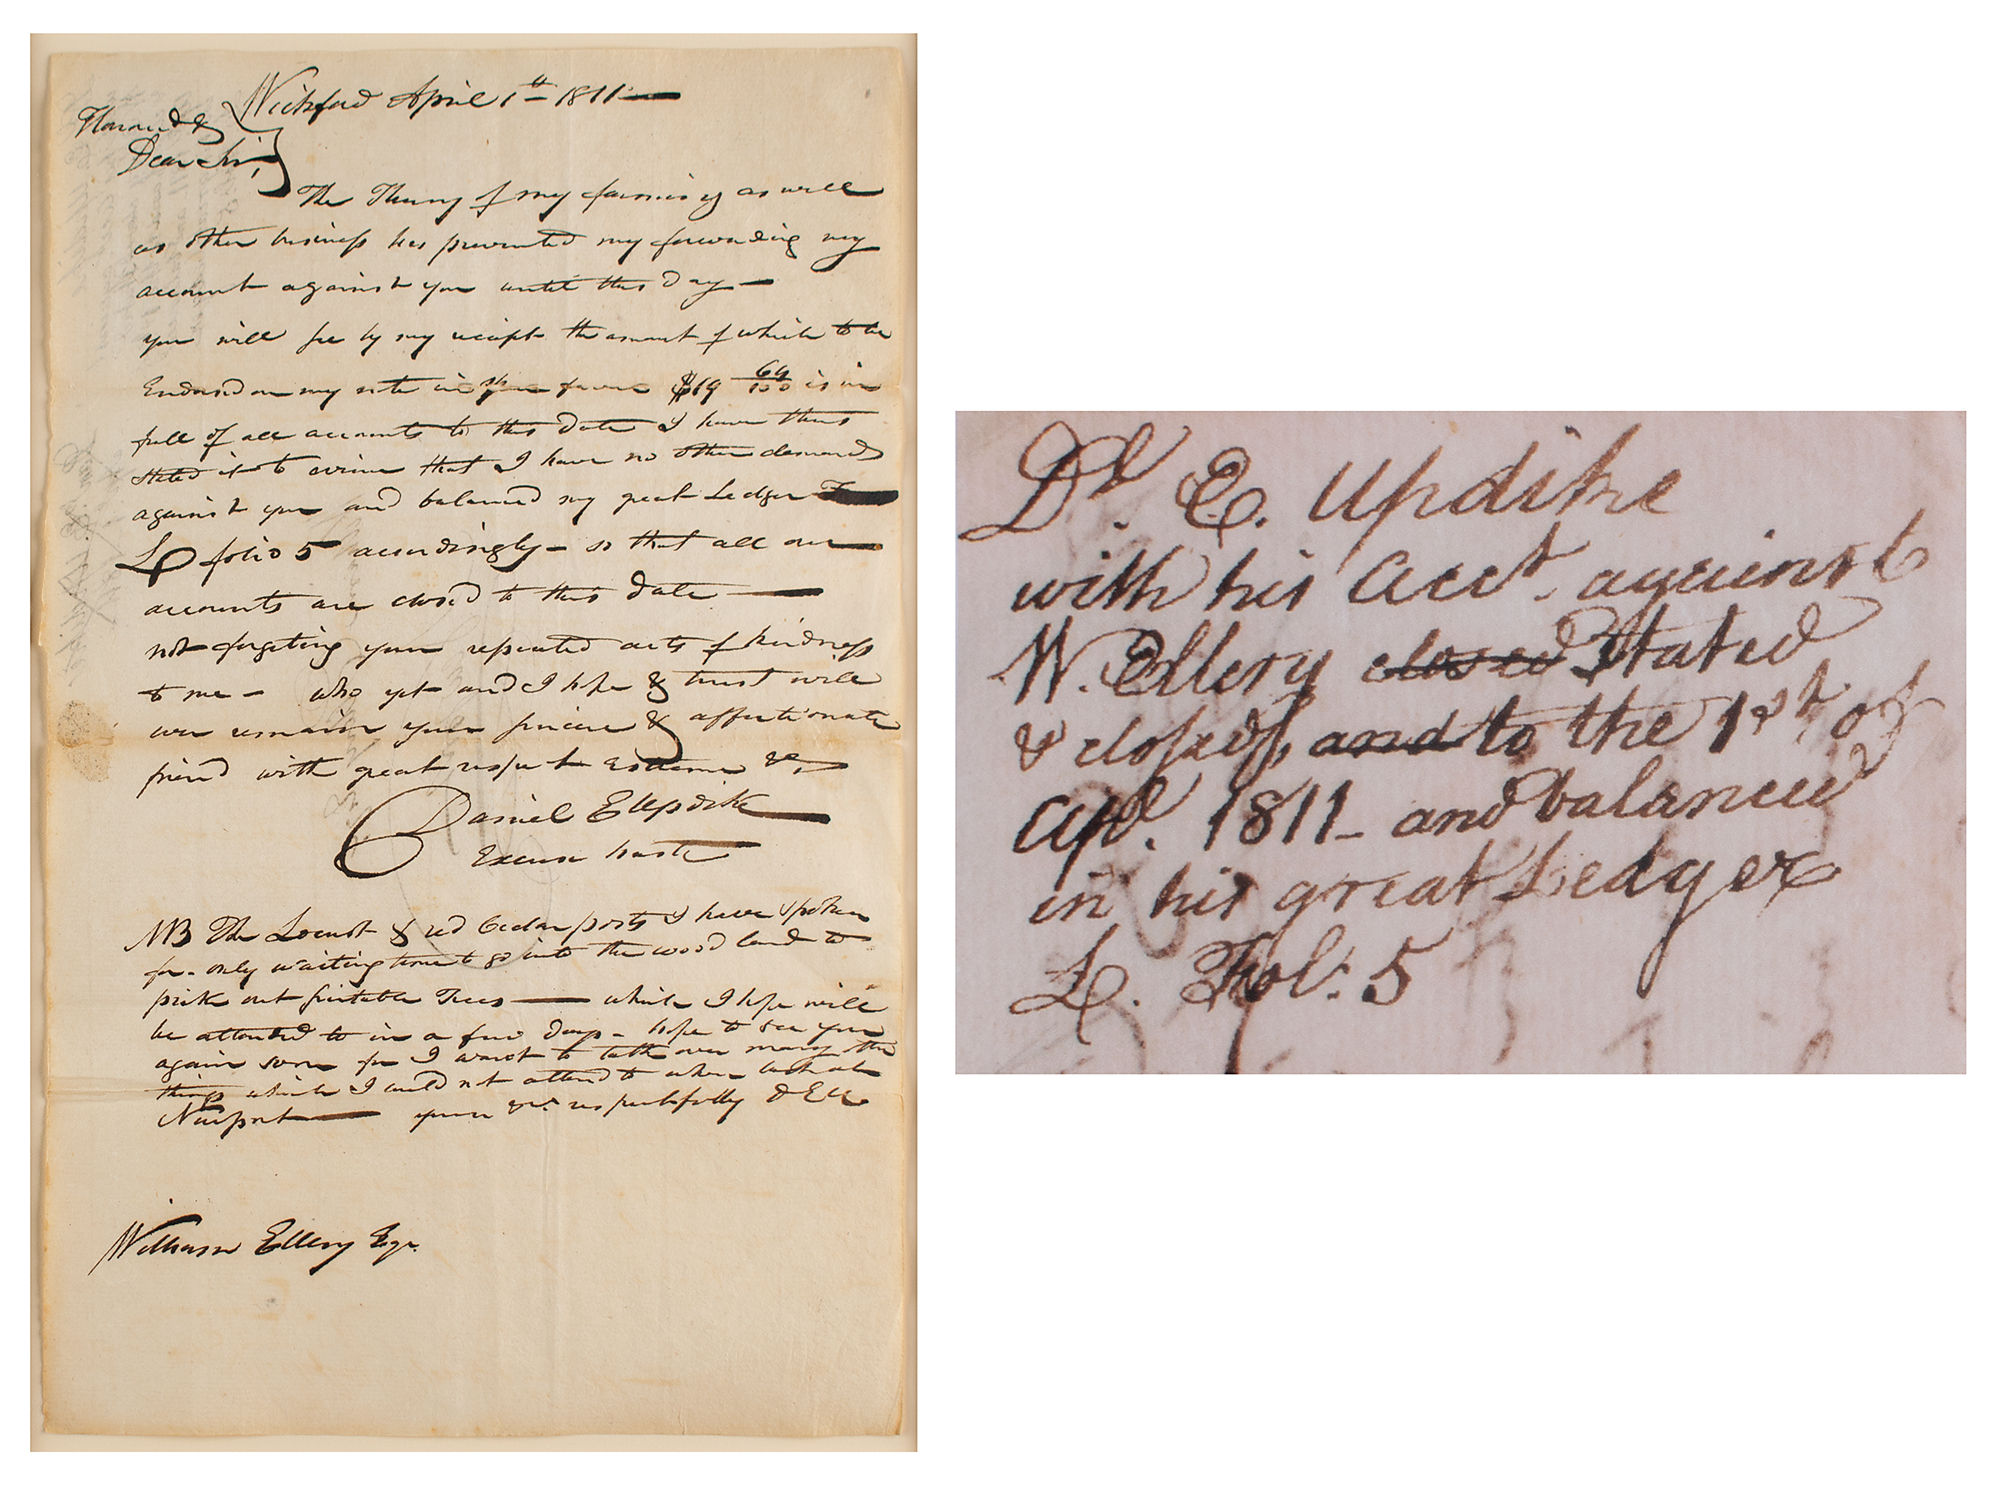 Wickford April 1th 1811
Honord &
Dear Sir,
The Hurry of my farming as well
as other business has prevented my forwarding my
account against you until this day —
you will see by my receipt the amount of which to be
Endorsd on my note in your favor $19 64/100 is in
full of all accounts to this date I have thus
stated it to evince that I have no other demand
against you and balanced my great Ledger
L folio 5 accordingly — so that all our
accounts are closd to this date —
not forgeting your repeated acts of kindness
to me — who yet and I hope & trust will
ever remain your sincere & affectionate
friend with great respect Esteem &c,
Daniel E Updike
Excuse haste
NB The Locust & red Cedar posts I have spoken
for — only waiting time to go into the wood land to
pick out suitable Trees — which I hope will
be attended to in a few days — hope to see you
again soon for I want to talk over many other
things which I could not attend to when last at
Newport — yours &c. respectfully D E U
William Ellery Esqr.
Dl. E. Updike
with his Acct. against
W. Ellery closed Stated
& closed, and to the 1st of
Apl. 1811 — and balanced
in his great Ledger
L. Fol: 5